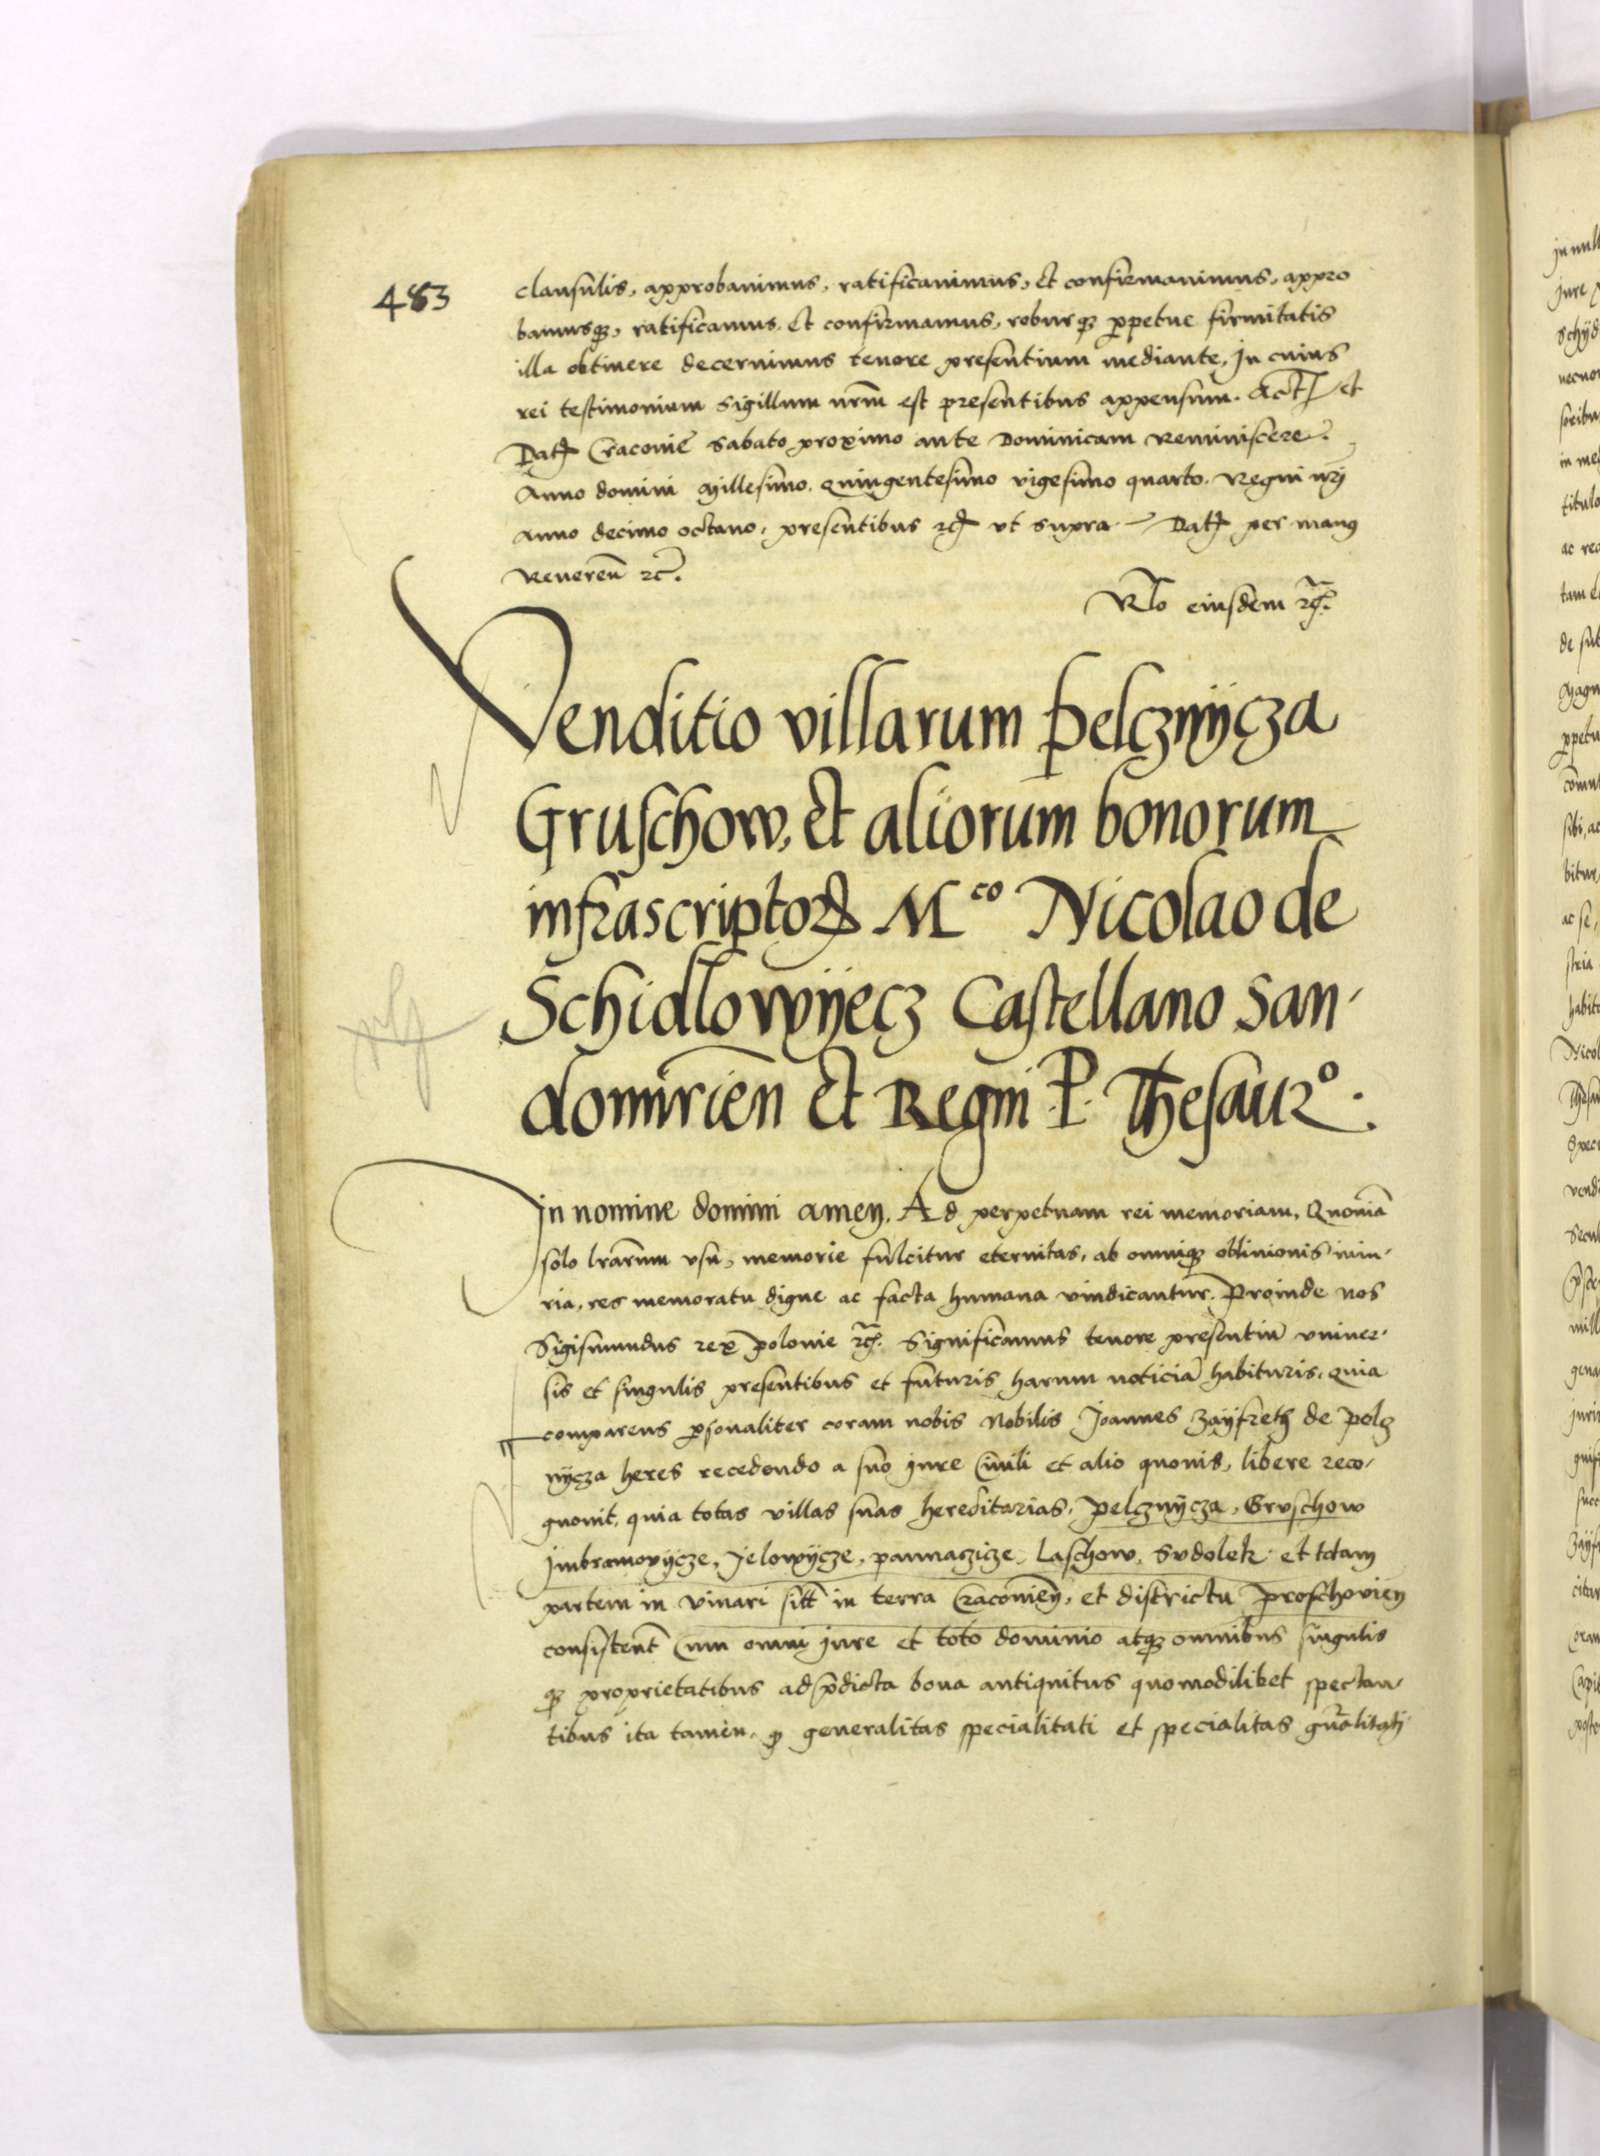 483
clausulis, approbavimus, ratificavimus, et confirmavimus, appro
bamusq3, ratificamus, et confirmamus, roburq3 ꝑpetue firmitatis
illa obtinere decernimus tenore presentium mediante, In cuius
rei testimonium Sigillum nrm̄ est presentibus appensum. Act et
Dat Cracovie Sabato proximo ante Dominicam Reminiscere.
Anno domini Millesimo. Quingentesimo vigesimo quarto. Regni nrj
Anno decimo octavo, presentibus etc vt supra – Dat per manq
Reveren̄ etc.
Rlo eiusdem etc.
Venditio villarum Pelcznÿcza
Gruschow, et aliorum bonorum
infrascriptoꝝ Mco Nicolao de
Schidlowÿecz Castellano San-
domirien̄ et Regni P. Thesaur°.
In nomine domini amen. Ad perpetuam rei memoriam. Quoniā
solo lrārum vsu, memorie fulcitur eternitas, ab omniq3 oblivionis iniu-
ria, res memoratu digne ac facta humana vindicantur. Proinde nos
Sigismundus rex polonie etc. Significamus tenore presentiū vniver-
sis et singulis presentibus et futuris harum noticiā habituris. Quia
comparens ꝑsonaliter coram nobis Nobilis Joannes Zaÿfreth de Pelcz
nÿcza heres recedendo a suo jure Civili et alio quovis, libere reco-
gnovit, quia totas villas suas hereditarias, Pelcznÿcza, Gruschow
Jmbramovÿcze, Jelowÿcze, pannaczicze, Laschow, Sudolek et totam
partem in Vinari sitt in terra Cracovien̄, et districtu Proschovien
consistent̄ Cum omni jure et toto dominio atq3 omnibus singulis
q3 proprietatibus ad p̄dicta bona antiquitus quomodilibet spectan-
tibus ita tamen, ꝙ generalitas specialitati et specialitas gn̄ralitati